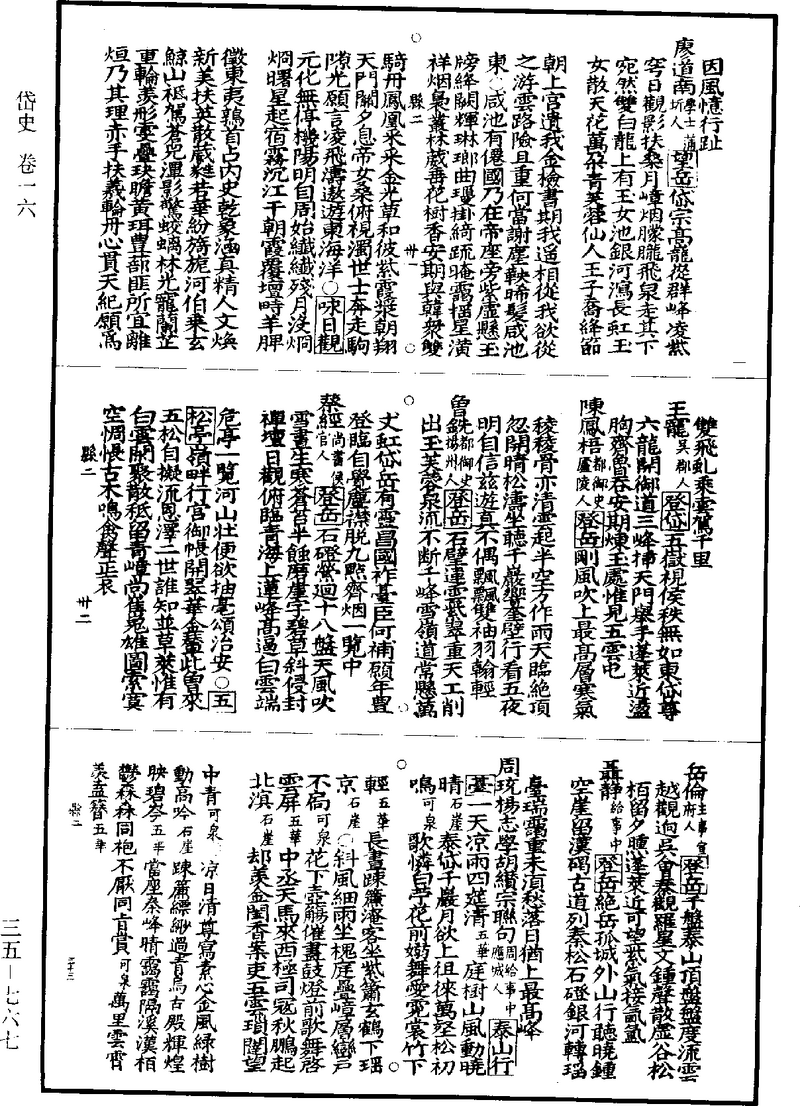 岱史 卷一六
因風憶行趾
廖道南 學士蒲圻人 望岳 岱宗高巃嵸群峰凌紫
穹日觀影扶桑月嶂烟朦朧飛泉走其下
宛然雙白龍上有玉女池銀河瀉長虹玉
女散天花萬朵青芙蓉仙人王子喬絳節
朝上宮遺我金檢書期我遥相從我欲從
之游雲路險且重何當謝塵鞅晞髮咸池
東○咸池有僊國乃在帝座旁紫虛懸玉
牓絳闕輝琳瑯曲璦掛綺疏晻靄擋星潢
祥烟裊叢林葳蕤花樹香安期與韓衆雙
縣二
廿一
騎丹鳳凰來采金光草和彼紫霞漿朝翔
天門闕夕息帝女桑俯視濁世士奔走駒
隙光願言凌飛濤遨遊東海洋○咏日觀
元化無停機陽明自周始纖纖殘月沒炯
炯曙星起宿霧沉江干朝霞覆壇時羊胛
徵東夷鷄首占内史乾象涵真精人文煥
新美扶英散葳蕤若華紛旖旎河伯乘玄
鯨山祗駕蒼兕潭影驚蛟螭林光寵蘭芷
重輪羡形雯疊玦瞻黄珥豊蔀匪所宜離
烜乃其理赤手扶羲輪丹心貫天紀願爲
雙飛虬乘雲駕千里
王寵 吳郡人 登岱 五嶽視侯秩無如東岱尊
六龍開御道三峰挿天門舉手蓬萊近盪
胸齊魯吞安期煉玉處惟見五雲屯
陳鳳梧 都御史廬陵人 登岳 剛風吹上最高層寒氣
稜稜骨亦清雲起半空方作雨天臨絶頂
忽開晴松濤坐聽千巖響菴壁行看五夜
明自信兹遊真不偶飄飄雙袖羽翰輕
曾銑 都御史揚州人 登岳 石壁連雲紫翠重天工削
出玉芙蓉泉流不断千峰雪嶺道常懸萬
丈虹岱岳有靈昌國祚臺臣何補願年豊
登臨自覺塵襟脱九點齊烟一覧中
蔡經 尚書侯官人 登岳 石磴縈迴十八盤天風吹
雪晝生寒蒼苔半蝕磨崖字碧草斜侵封
禪壇日觀俯臨青海上蓮峰高逼白雲端
危亭一覧河山壯便欲抽毫頌治安○五
松亭 嶺畔行宫御帳開翠華金輦此曾來
五松自擬流恩澤二世誰知並草萊惟有
白雲閑聚散秪留青嶂尚崔嵬雄圖索寞
空惆悵古木鳴禽聲正哀
縣二
廿二
岳倫 主事宣府人 登岳 千盤泰山頂盤盤度流雲
越觀迥吳會秦觀羅星文鍾聲散虛谷松
栢留夕曛蓬萊近可望紫氣接氤氲
聶静 給事中 登岱 絶岳孤城外山行聽曉鍾
空崖留漢碣古道列秦松石磴銀河轉瑶
臺瑞靄重未頂愁落日猶上最高峰
周琉楊志學胡纘宗聯句 周給事中應城人 泰山行
臺 一天凉雨四筵清 五華 庭樹山風動曉
晴 石崖 泰岱千巖月欲上徂徠萬壑松初
鳴 可泉 歌憐白亭花前妨舞愛霓裳竹下
輕 五華 長晝踈簾滄客坐紫簫玄鶴下瑶
京 石崖 ○斜風細雨坐槐庭疊嶂层巒戸
不扄 可泉 花下壺觴催晝鼓燈前歌舞啓
雲屏 五華 中丞天馬來西極司冦秋鵬起
北滇 石崖 却羡金閨香案吏五雲瑣闥望
中青 可泉 凉日清尊寫素心金風緑樹
動高吟 石崖 踈簾縹緲過青鳥古殿輝煌
映碧岑 五華 當座秦峰晴靄靄隔溪漢柏
鬱森森同袍不厭同肯賞 可泉 萬里雲霄
羨盍簪 五華
縣二
二十三
三五－七六七